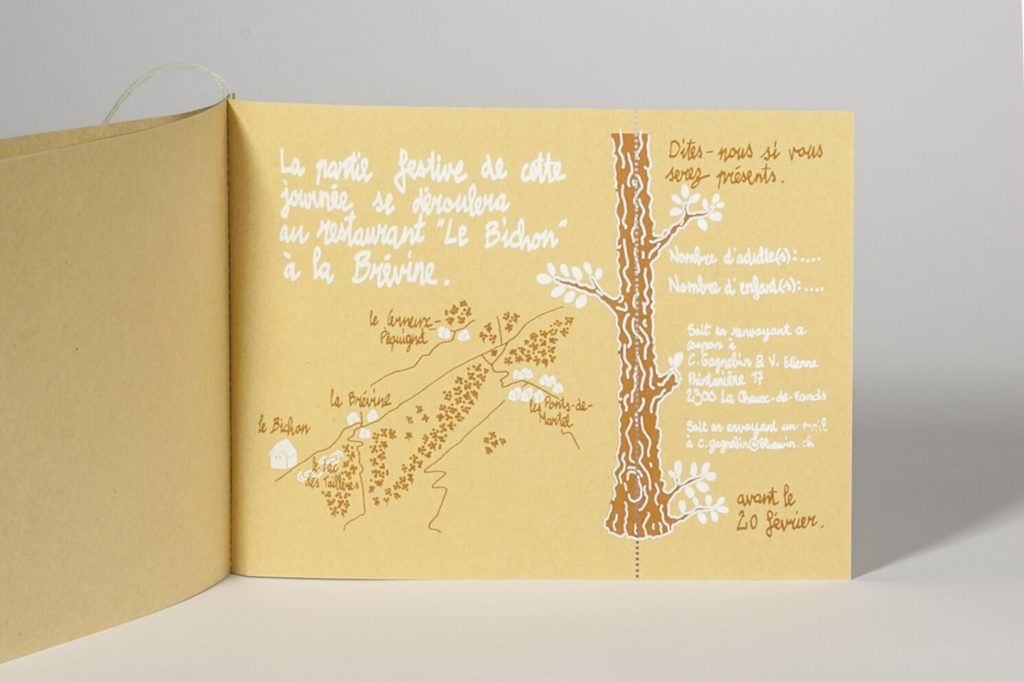 La partie festive de cette
journée se déroulera
au restaurant "Le Bichon"
à la Brévine.
le Cerneux-
Péquignot
la Brévine
le Bichon
le Lac
des Taillères
les Ponts-de-
Martel
Dites-nous si vous
serez présents.
Nombre d'adulte(s):....
Nombre d'enfant(s):....
Soit en renvoyant ce
coupon à
C. Gagnebin & V. Etienne
Printanière 17
2300 La Chaux-de-Fonds
Soit en envoyant un mail
à c.gagnebin@bluewin.ch
avant le
20 février.